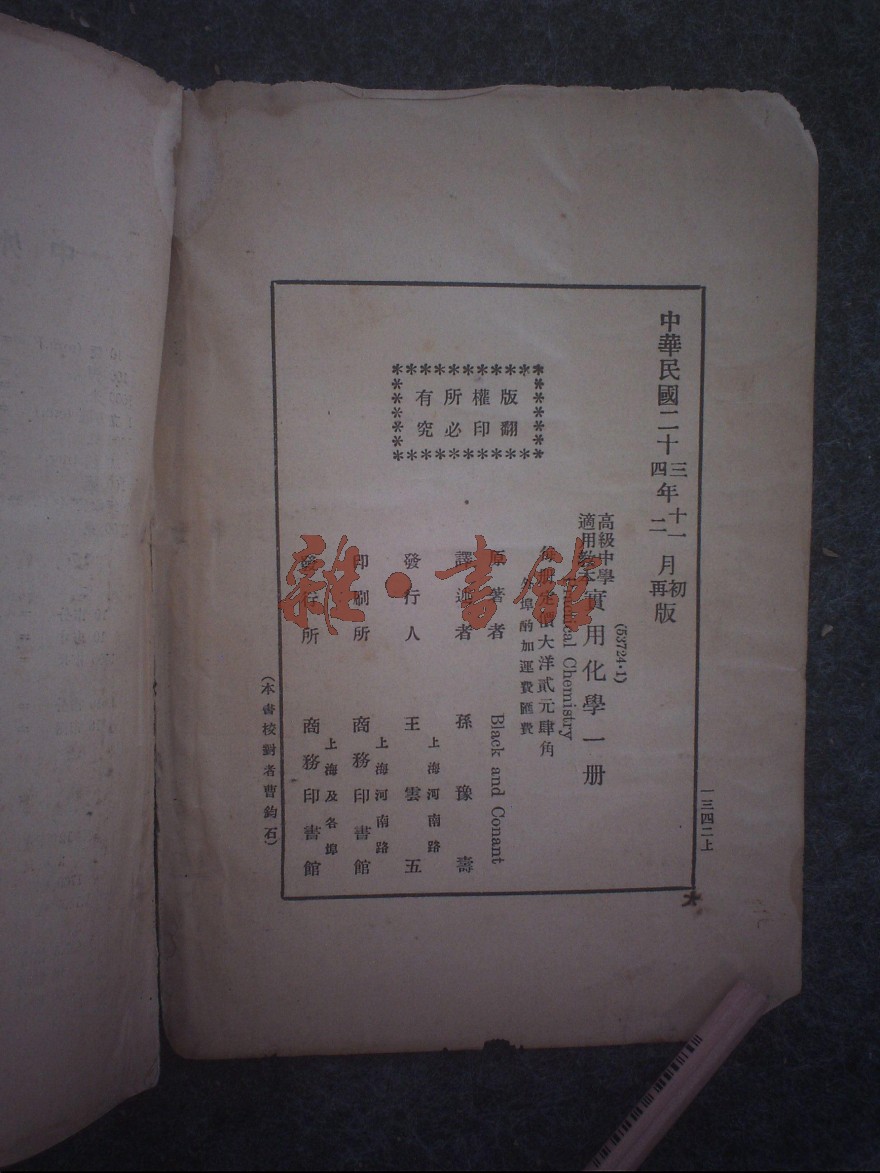 中華民國二十三年十一月初版
四 二 再
一三四二上
(53724·1)
高級中學
適用教本
實用化學一册
Practical Chemistry
每册定價大洋貳元肆角
外埠酌加運費匯費
版權所有
翻印必究
原著者 Black and Conant
譯述者 孫豫壽
上海河南路
發行人 王雲五
上海河南路
印刷所 商務印書館
上海及各埠
發行所 商務印書館
(本書校對者曹鈞石)
雜·書館